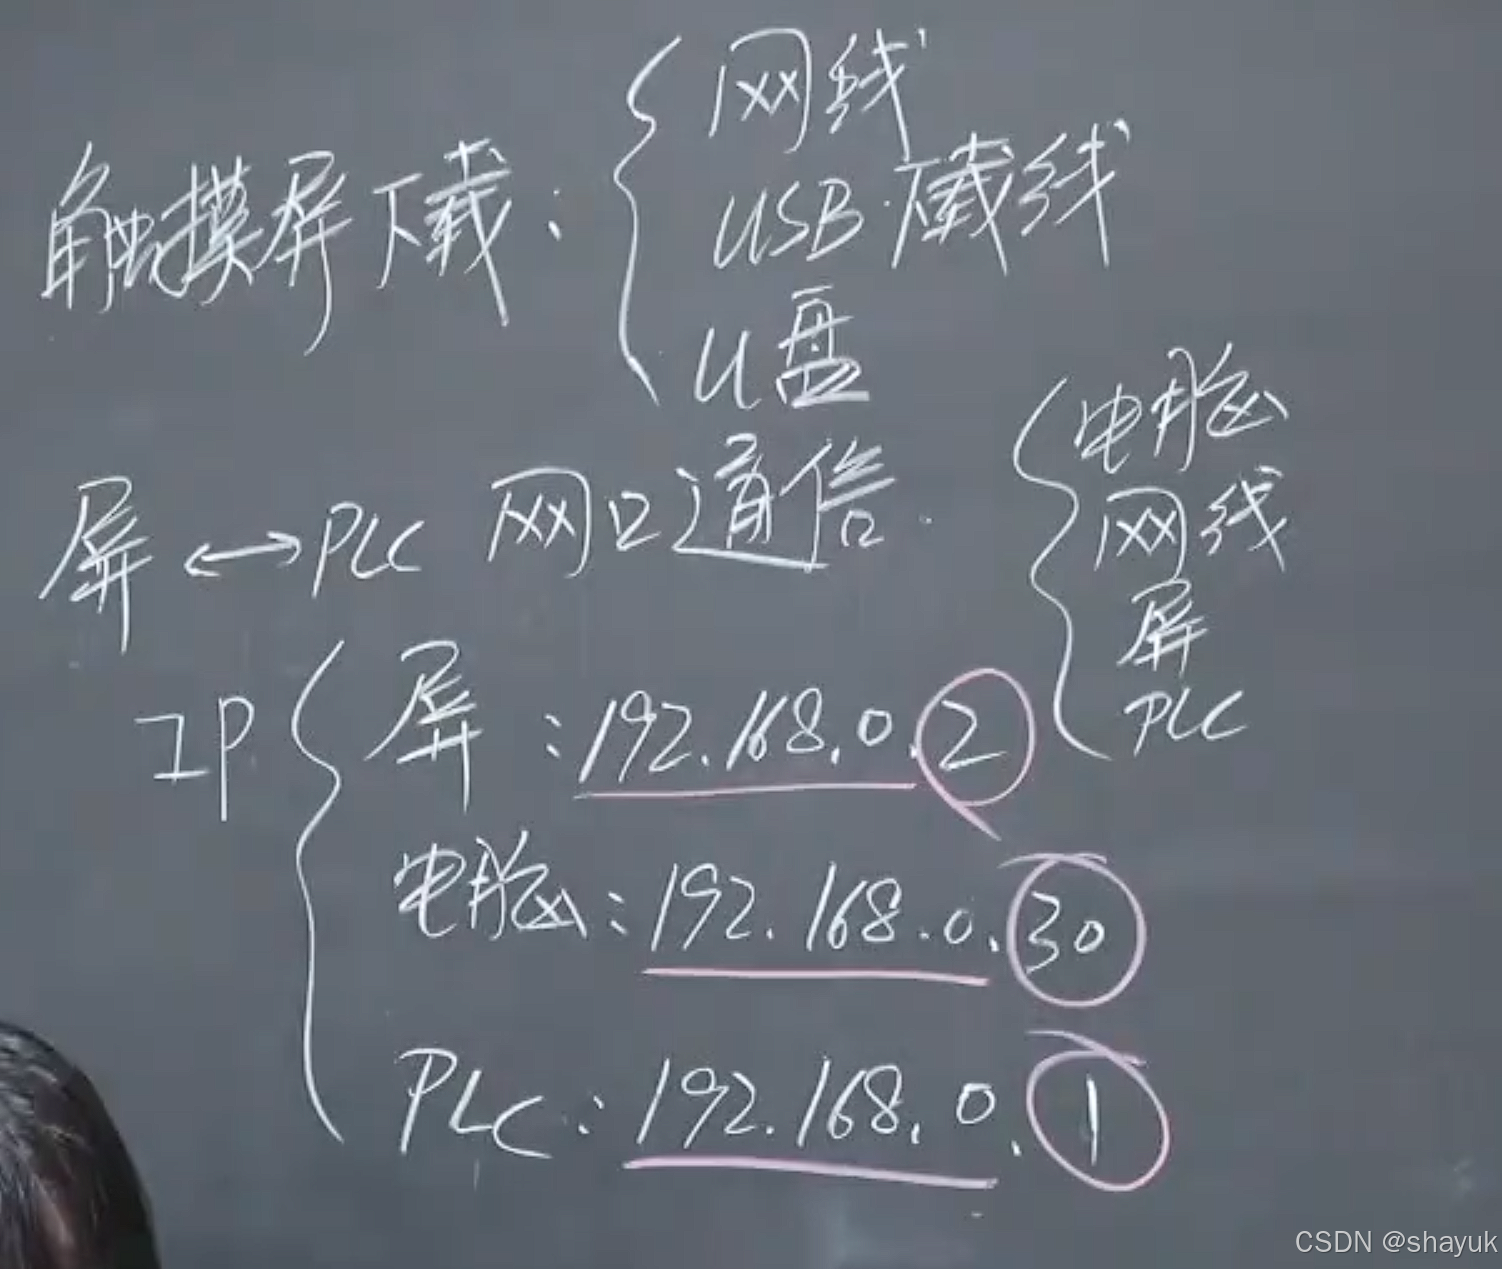 网线
触摸屏下载：
USB下载线
U盘
屏↔PLC 网口通信.
电脑
网线
屏
PLC
IP
屏：192.168.0.2
电脑：192.168.0.30
PLC：192.168.0.1
CSDN @shayuk